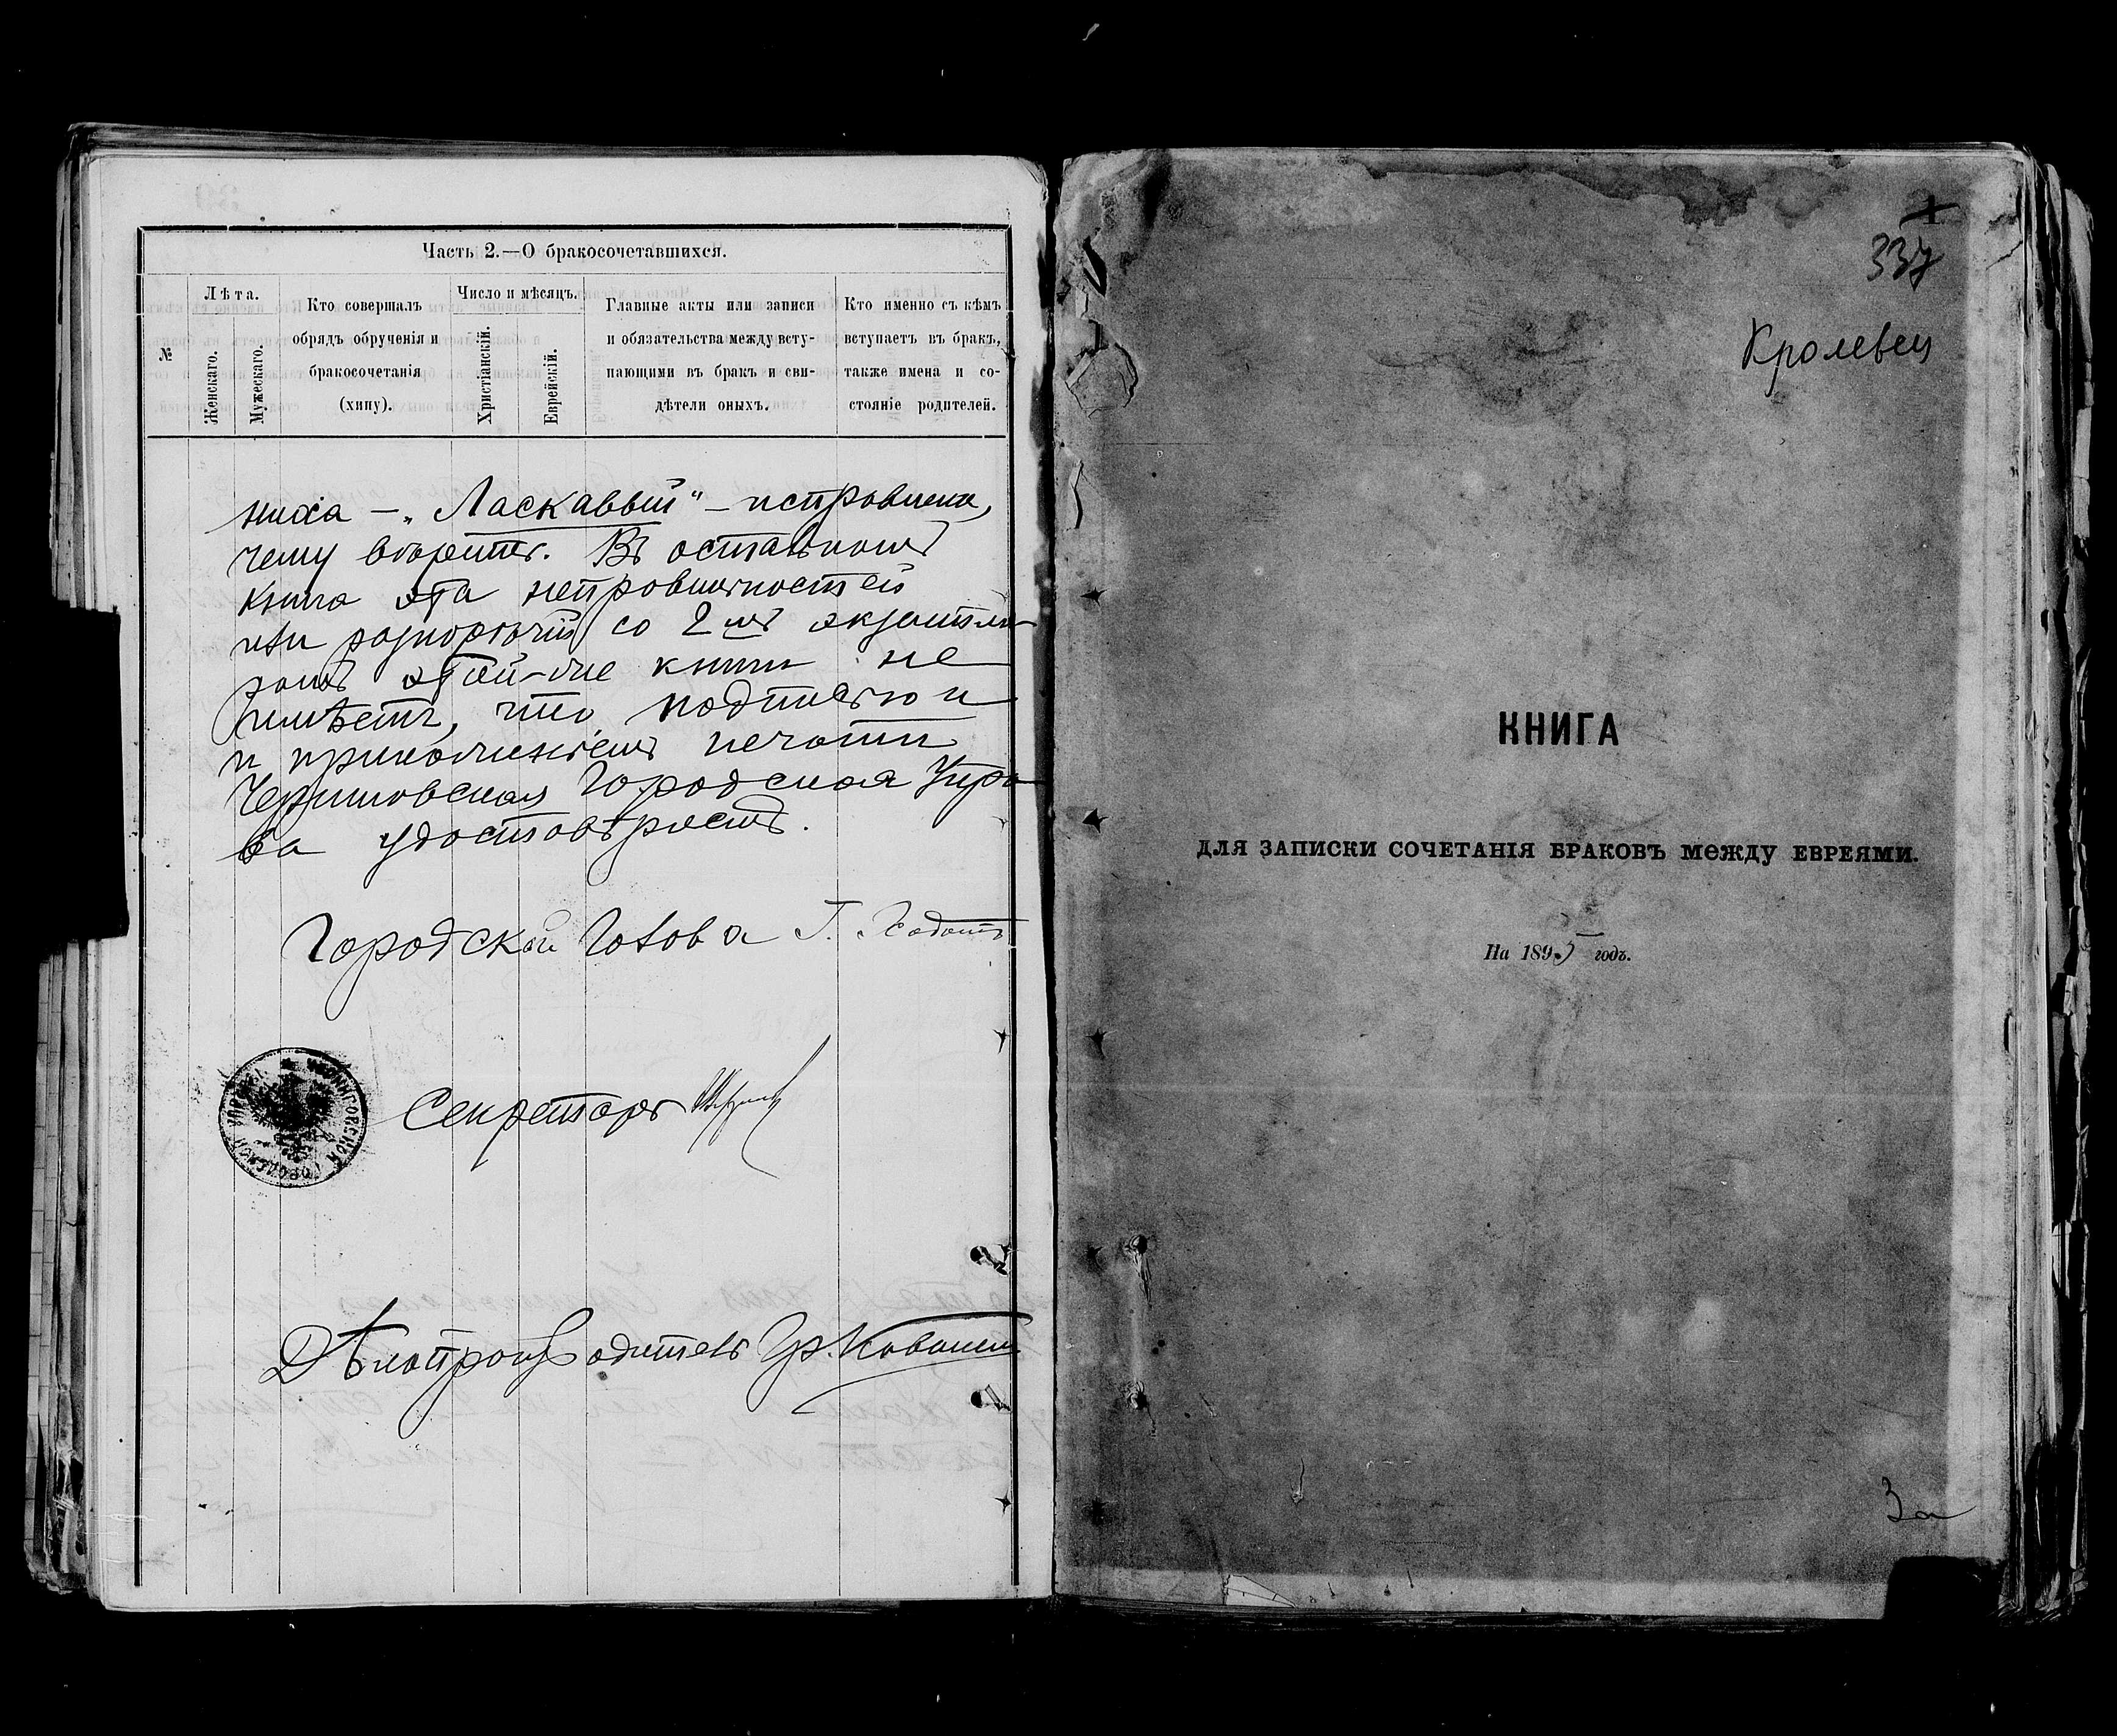 Часть 2.—О бракосочетавшихся.
№
Лѣта.
Женскаго.
Мужескаго.
Кто совершалъ
обрядъ обрученія и
бракосочетанія
(хипу).
Число и мѣсяцъ.
Христіанскій.
Еврейскій.
Главные акты или записи
и обязательства между всту-
пающими въ бракъ и сви-
дѣтели оныхъ.
Кто именно съ кѣмъ
вступаетъ въ бракъ,
также имена и со-
стояніе родителей.
ниха – „Ласкавый" –
чему вѣрить. Въ остальномъ
книга эта неправильностей
или разнорѣчій со 2мъ экземпля-
ромъ этой-же книги не
имѣетъ, что подписью и
и приложеніемъ печати
Черниговская Городская Упра-
ва удостовѣряетъ.
Городской Голова Г.
ЧЕРНИГОВСКОЙ ГОРОДСКОЙ УПРАВЫ
Секретарь
Дѣлопроизводитель Гр.
337
Кролевец
КНИГА
ДЛЯ ЗАПИСКИ СОЧЕТАНІЯ БРАКОВЪ МЕЖДУ ЕВРЕЯМИ.
На 1895 годъ.